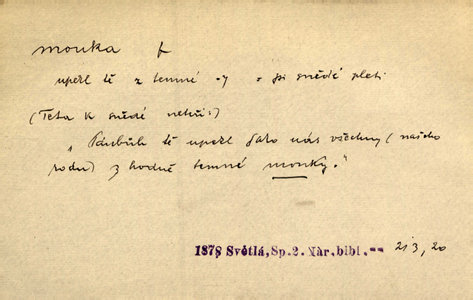 mouka f
upekl tě z temné -y = při snědé pleti.
(Teta k snědé neteři:)
„Pánbůh tě upekl jako nás všechny (našeho
rodu) z hodně temné mouky."
1878 Světlá, Sp. 2. Nár. bibl. -- 213, 20